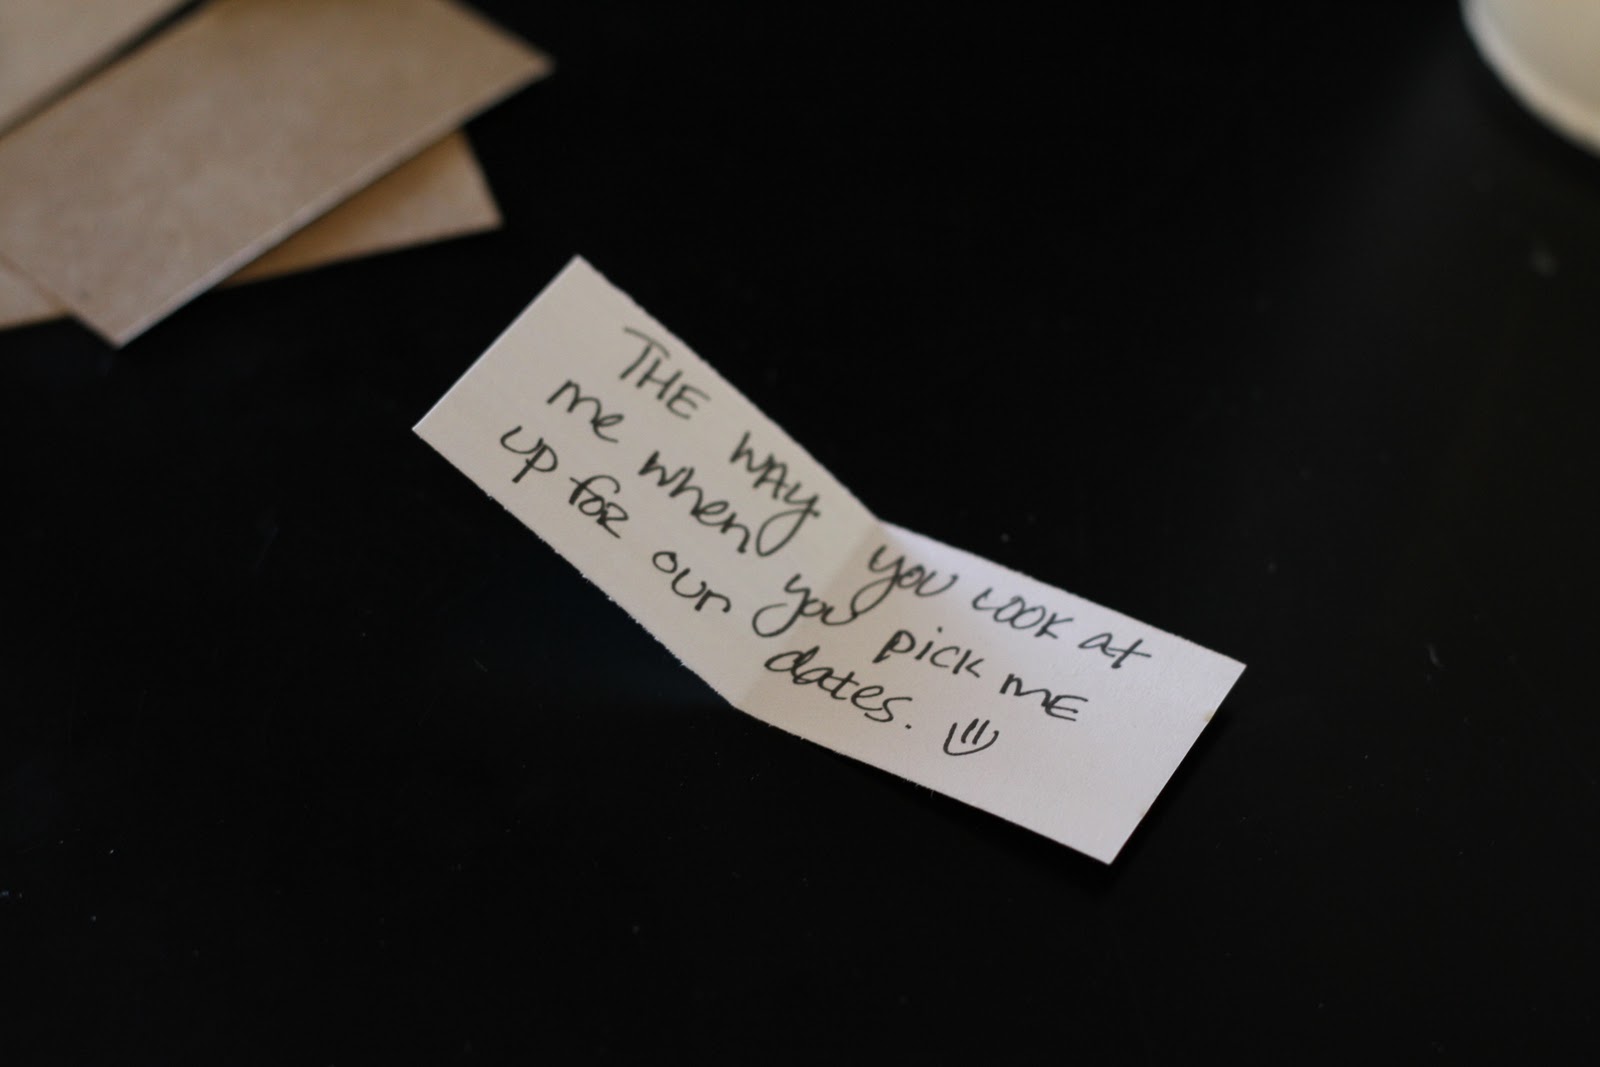 THE WAY you LOOK at
me when you pick ME
up foR our dates. =)